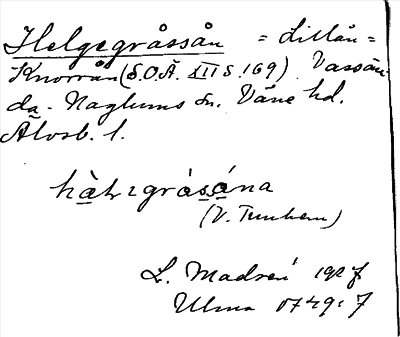 Helgegråssån = Lillån =
Knorrån (S.O.Ä. XII s. 169). Vassän
da - Naglums sn. Väne hd.
Älvsb. l.
hæ̀lgrå̀sǻna
(V. Tunhem)
L. Madsén 1927
Ulma 0749:7